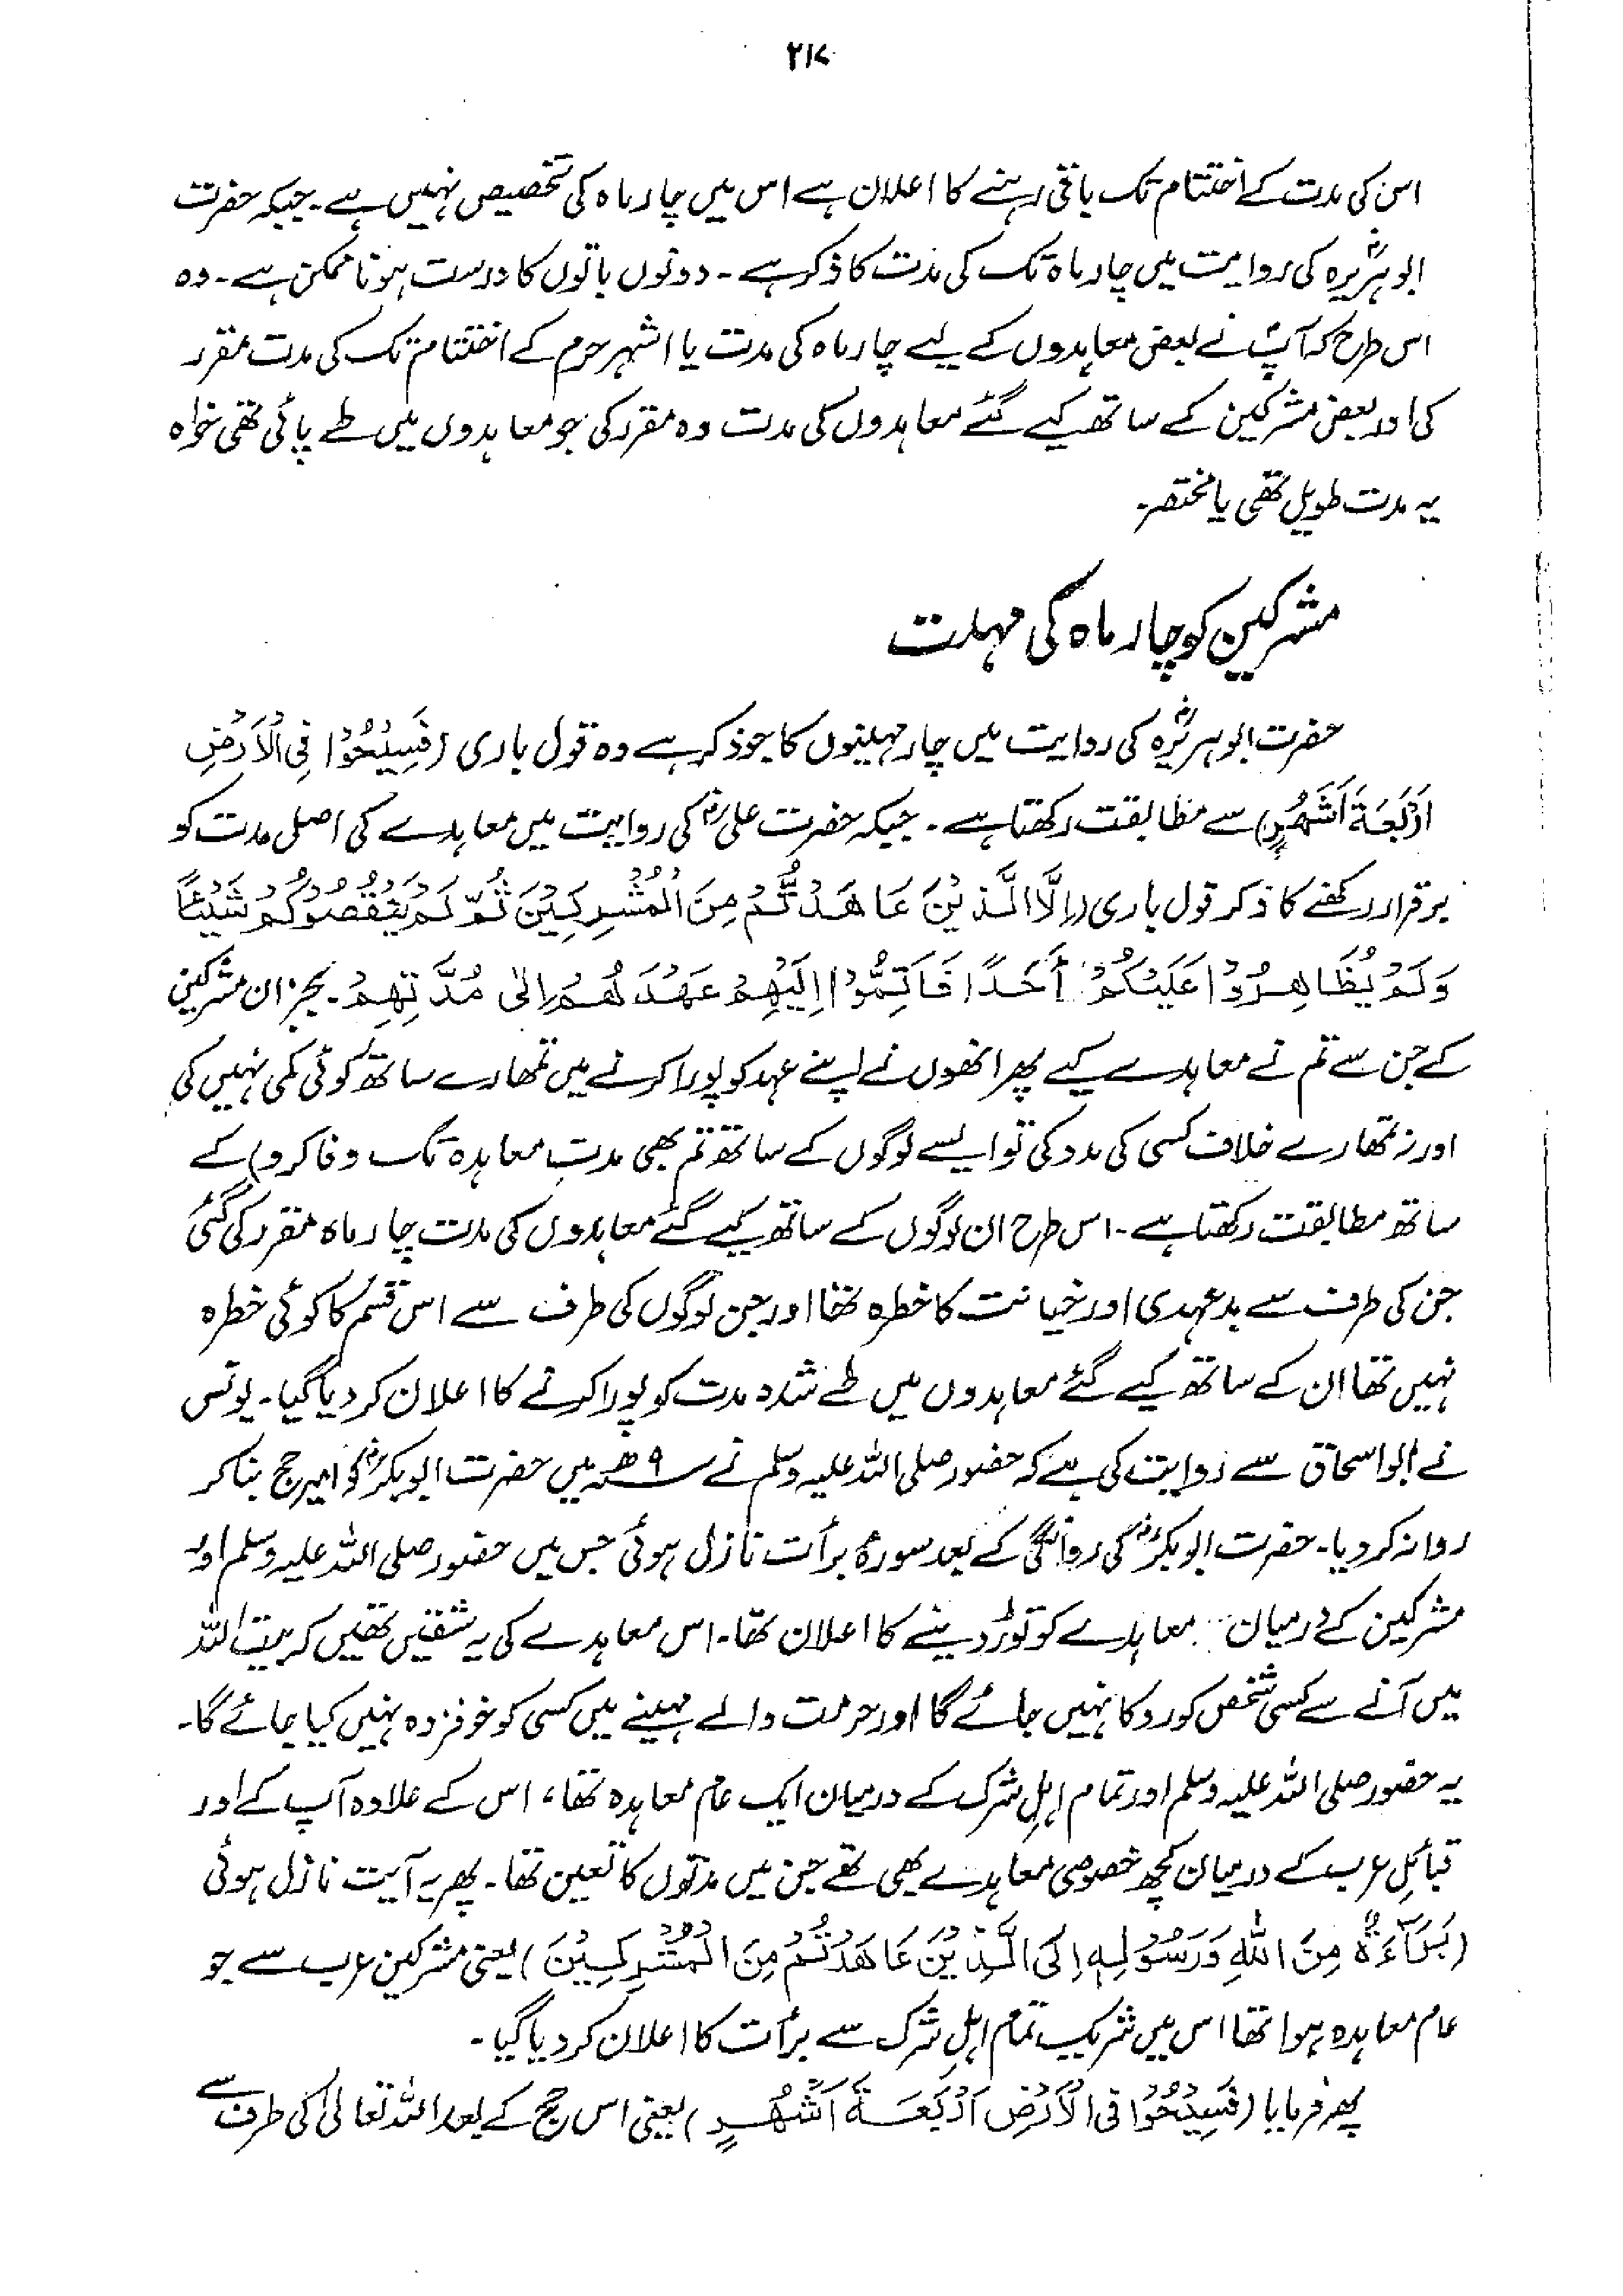 ۲۱۷
اس کی مدت کے اختتام تک باقی رہنے کا اعلان ہے اس میں چار ماہ کی تخصیص نہیں ہے۔ جبکہ حضرت
ابوہریرہؓ کی روایت میں چار ماہ تک کی مدت کا ذکر ہے۔ دونوں باتوں کا درست ہونا ممکن ہے۔ وہ
اس طرح کہ آپؐ نے بعض معاہدوں کے لیے چار ماہ کی مدت یا اشہر حرم کے اختتام تک کی مدت مقرر
کی اور بعض مشرکین کے ساتھ کیے گئے معاہدوں کی مدت وہ مقرر کی جو معاہدوں میں طے پائی تھی خواہ
یہ مدت طویل تھی یا مختصر۔
مشرکین کو چار ماہ کی مہلت
حضرت ابوہریرہؓ کی روایت میں چار مہینوں کا جو ذکر ہے وہ قول باری (فَسِيْحُوْا فِي الْاَرْضِ
اَرْبَعَةَ اَشْهُرٍ) سے مطابقت رکھتا ہے۔ جبکہ حضرت علیؓ کی روایت میں معاہدے کی اصلی مدت کو
برقرار رکھنے کا ذکر قول باری (اِلَّا الَّذِيْنَ عَاهَدْتُّمْ مِنَ الْمُشْرِكِيْنَ ثُمَّ لَمْ يَنْقُصُوْكُمْ شَيْئًا
وَلَمْ يُظَاهِرُوْا عَلَيْكُمْ اَحَدًا فَاَتِمُّوْا اِلَيْهِمْ عَهْدَهُمْ اِلٰى مُدَّتِهِمْ۔ بجز ان مشرکین
کے جن سے تم نے معاہدے کیے پھر انھوں نے اپنے عہد کو پورا کرنے میں تمھارے ساتھ کوئی کمی نہیں کی
اور نہ تمھارے خلاف کسی کی مدد کی تو ایسے لوگوں کے ساتھ تم بھی مدتِ معاہدہ تک وفا کرو) کے
ساتھ مطابقت رکھتا ہے۔ اس طرح ان لوگوں کے ساتھ کیے گئے معاہدوں کی مدت چار ماہ مقرر کی گئی
جن کی طرف سے بدعہدی اور خیانت کا خطرہ تھا اور جن لوگوں کی طرف سے اس قسم کا کوئی خطرہ
نہیں تھا ان کے ساتھ کیے گئے معاہدوں میں طے شدہ مدت کو پورا کرنے کا اعلان کر دیا گیا۔ یونس
نے ابواسحاق سے روایت کی ہے کہ حضور صلی اللہ علیہ وسلم نے سنہ ۹ھ میں حضرت ابوبکرؓ کو امیر حج بنا کر
روانہ کر دیا۔ حضرت ابوبکرؓ کی روانگی کے بعد سورۂ برأت نازل ہوئی جس میں حضور صلی اللہ علیہ وسلم اور
مشرکین کے درمیان معاہدے کو توڑ دینے کا اعلان تھا۔ اس معاہدے کی یہ شقیں تھیں کہ بیت اللہ
میں آنے سے کسی شخص کو روکا نہیں جائے گا اور حرمت والے مہینے میں کسی کو خوفزدہ نہیں کیا جائے گا۔
یہ حضور صلی اللہ علیہ وسلم اور تمام اہلِ شرک کے درمیان ایک عام معاہدہ تھا، اس کے علاوہ آپ کے اور
قبائلِ عرب کے درمیان کچھ خصوصی معاہدے بھی تھے جن میں مدتوں کا تعین تھا۔ پھر یہ آیت نازل ہوئی
(بَرَآءَةٌ مِنَ اللّٰهِ وَرَسُوْلِهٖ اِلَى الَّذِيْنَ عَاهَدْتُمْ مِنَ الْمُشْرِكِيْنَ) یعنی مشرکین عرب سے جو
عام معاہدہ ہوا تھا اس میں شریک تمام اہلِ شرک سے برأت کا اعلان کر دیا گیا۔
پھر فرمایا (فَسِيْحُوْا فِی الْاَرْضِ اَرْبَعَةَ اَشْهُرٍ) یعنی اس حج کے بعد اللہ تعالیٰ کی طرف سے